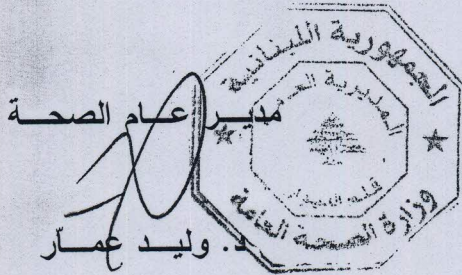 مدير عام الصحة
د. وليد عمار
الجمهورية اللبنانية
وزارة الصحة العامة
المديرية العامة